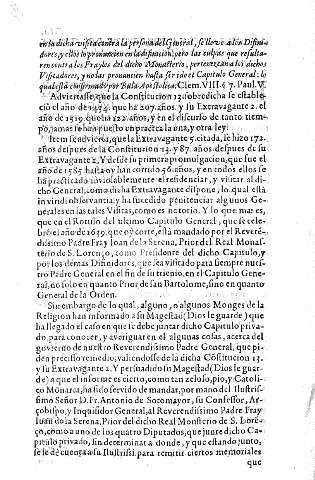 en la dicha visita contra la persona del General, se lleve a los Difini-
dores, y ellos lo pronuncien en la difinicion, pero las culpas que resulta-
ren contra los Frayles del dicho Monasterio, pertenezcan a los dichos
Visitadores, y no las pronuncien hasta ser ido el Capitulo General: lo
qual està confirmado por Bula Apostolica, Clem. VIII. & 7. Paul. V.
Advierte se, que la Constitucion 13. sobredicha se estable-
ciò el año de 1434. que ha 207. años. y su Extravagante 2. el
año de 1519. que ha 122. años, y en el discurso de tanto tiem-
po, jamas se han puesto un practica la una, y otra ley:
Item se advierta, que la Extravagante 5. citada, se hizo 172.
años despues de la Constitucion 13. y 87. años despues de su
Extravagante 2. Y desde su primera promulgacion, que fue el
año de 1585 hasta oy han corrido 56. años, y en todos ellos se
ha practicado inviolablemente el residenciar, y visitar al di-
cho General, como dicha Extravagante dispone, lo qual està
in viridi observantia, y ha sucedido penitenciar algunos Ge-
nerales en las tales Visitas, como es notorio. Y lo que mas es,
que en el Rotulo del ultimo Capitulo General, que se cele-
brò el año de 1639. que oy corre, està mandado por el Reveré-
dissimo Padre Fray Ioan de la Serena, Prior del Real Monas-
terio de S. Lorenço, como Presidente del dicho Capitulo, y
por los demas Difinidores, que sea visitado para siempre nuestro
Padre General en el fin de su trienio, en el Capitulo Gene-
ral, no solo en quanto Prior de san Bartolome, sino en quanto
General de la Orden.
Sin embargo de lo qual, alguno, o algunos Monges de la
Religion han informado a su Magestad (Dios le guarde) que
ha llegado el caso en que se debe juntar dicho Capitulo priva-
do, para conocer, y averiguar en el algunas cosas, acerca del
govierno de nuestro Reverendissimo Padre General, que pi-
den preciso remedio, valiendose de la dicha Cõstitucion 13.
y su Extravagante 2. Y persuadido su Magestad (Dios le guar-
de) a que el informe es cierto, como tan zeloso, pio, y Catoli-
co Monarca, ha sido servido de mandar, por mano del Ilustris-
simo Señor D. Fr. Antonio de Sotomayor, su Confessor, Ar-
çobispo, y Inquisidor General, al Reverendissimo Padre Fray
Iuan de la Serena, Prior del dicho Real Monasterio de S. Lore-
ço, como a uno de los quatro Diputados, que junte dicho Ca-
pitulo privado, sin determinar a donde, y que estando junto,
se le dè cuenta a su Ilustriss. para remitir ciertos memoriales
que